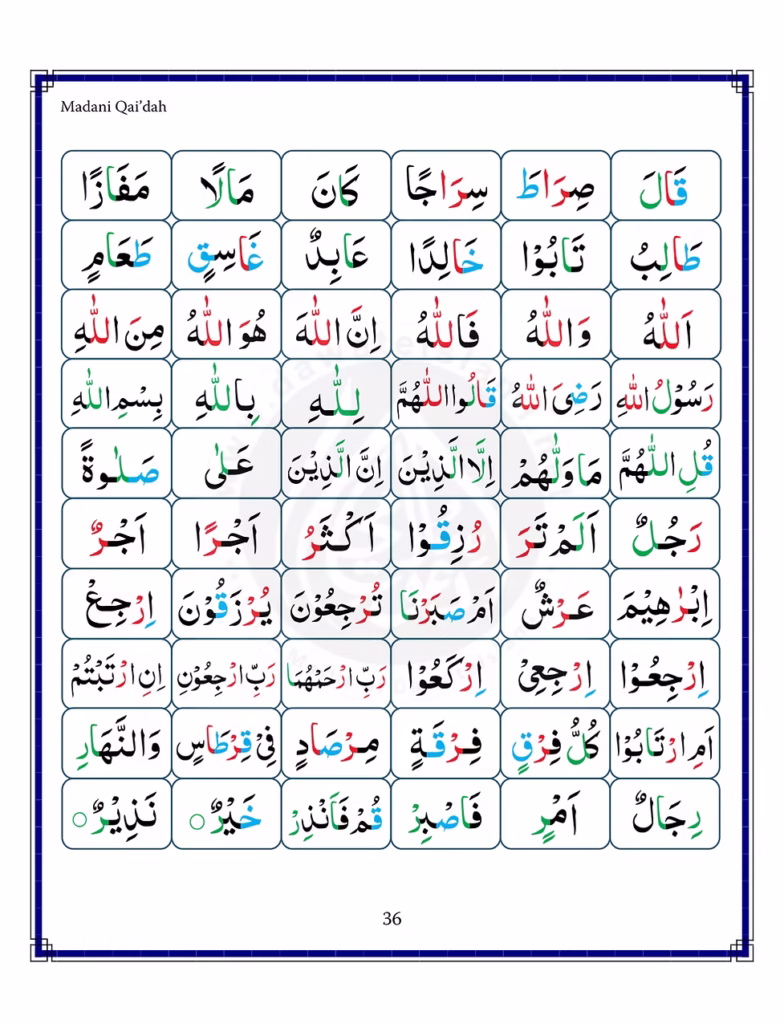 Madani Qai'dah
قَالَ صِرَاطَ سِرَاجًا كَانَ مَالًا مَفَازًا
طَالِبُ تَابُوْا خَالِدًا عَابِدٌ غَاسِقٍ طَعَامٍ
اَللّٰهُ وَاللّٰهُ فَاللّٰهُ اِنَّ اللّٰهَ هُوَ اللّٰهُ مِنَ اللّٰهِ
رَسُوْلُ اللّٰهِ رَضِیَ اللّٰهُ قَالُوا اللّٰهُمَّ لِلّٰهِ بِاللّٰهِ بِسْمِ اللّٰهِ
قُلِ اللّٰهُمَّ مَا وَلّٰهُمْ اِلَّا الَّذِیْنَ اِنَّ الَّذِیْنَ عَلٰی صَلٰوةً
رَجُلٌ اَلَمْ تَرَ رُزِقُوْا اَكْثَرُ اَجْرًا اَجْرٌ
اِبْرٰهِیْمَ عَرْشٌ اَمْ صَبَرْنَا تُرْجَعُوْنَ یُرْزَقُوْنَ اِرْجِعْ
اِرْجِعُوْا اِرْجِعِیْ اِرْكَعُوْا رَبِّ ارْحَمْهُمَا رَبِّ ارْجِعُوْنِ اِنِ ارْتَبْتُمْ
اَمِ ارْتَابُوْا كُلُّ فِرْقٍ فِرْقَةٍ مِرْصَادٍ فِیْ قِرْطَاسٍ وَالنَّهَارِ
رِجَالٌ اَمْرٍ فَاصْبِرْ قُمْ فَاَنْذِرْ خَیْرٌ ○ نَذِیْرٌ ○
36